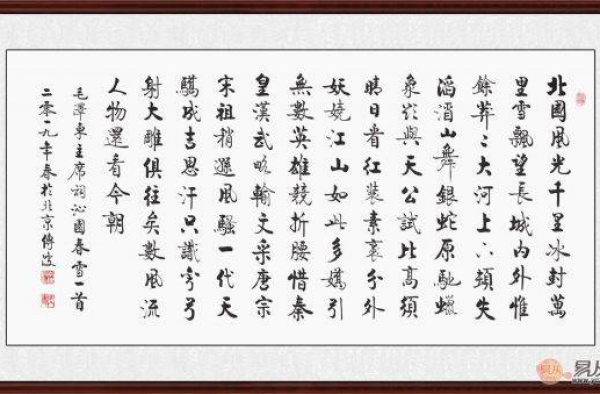 北國風光千里冰封萬
里雪飄望長城內外惟
餘莽々大河上下頓失
滔滔山舞銀蛇原馳蠟
象欲與天公試比高須
晴日看紅裝素裹分外
妖嬈江山如此多嬌引
無數英雄競折腰惜秦
皇漢武略輸文采唐宗
宋祖稍遜風騷一代天
驕成吉思汗只識彎弓
射大雕俱往矣數風流
人物還看今朝
毛澤東主席詞沁園春雪一首
二零一九年春於北京傅波